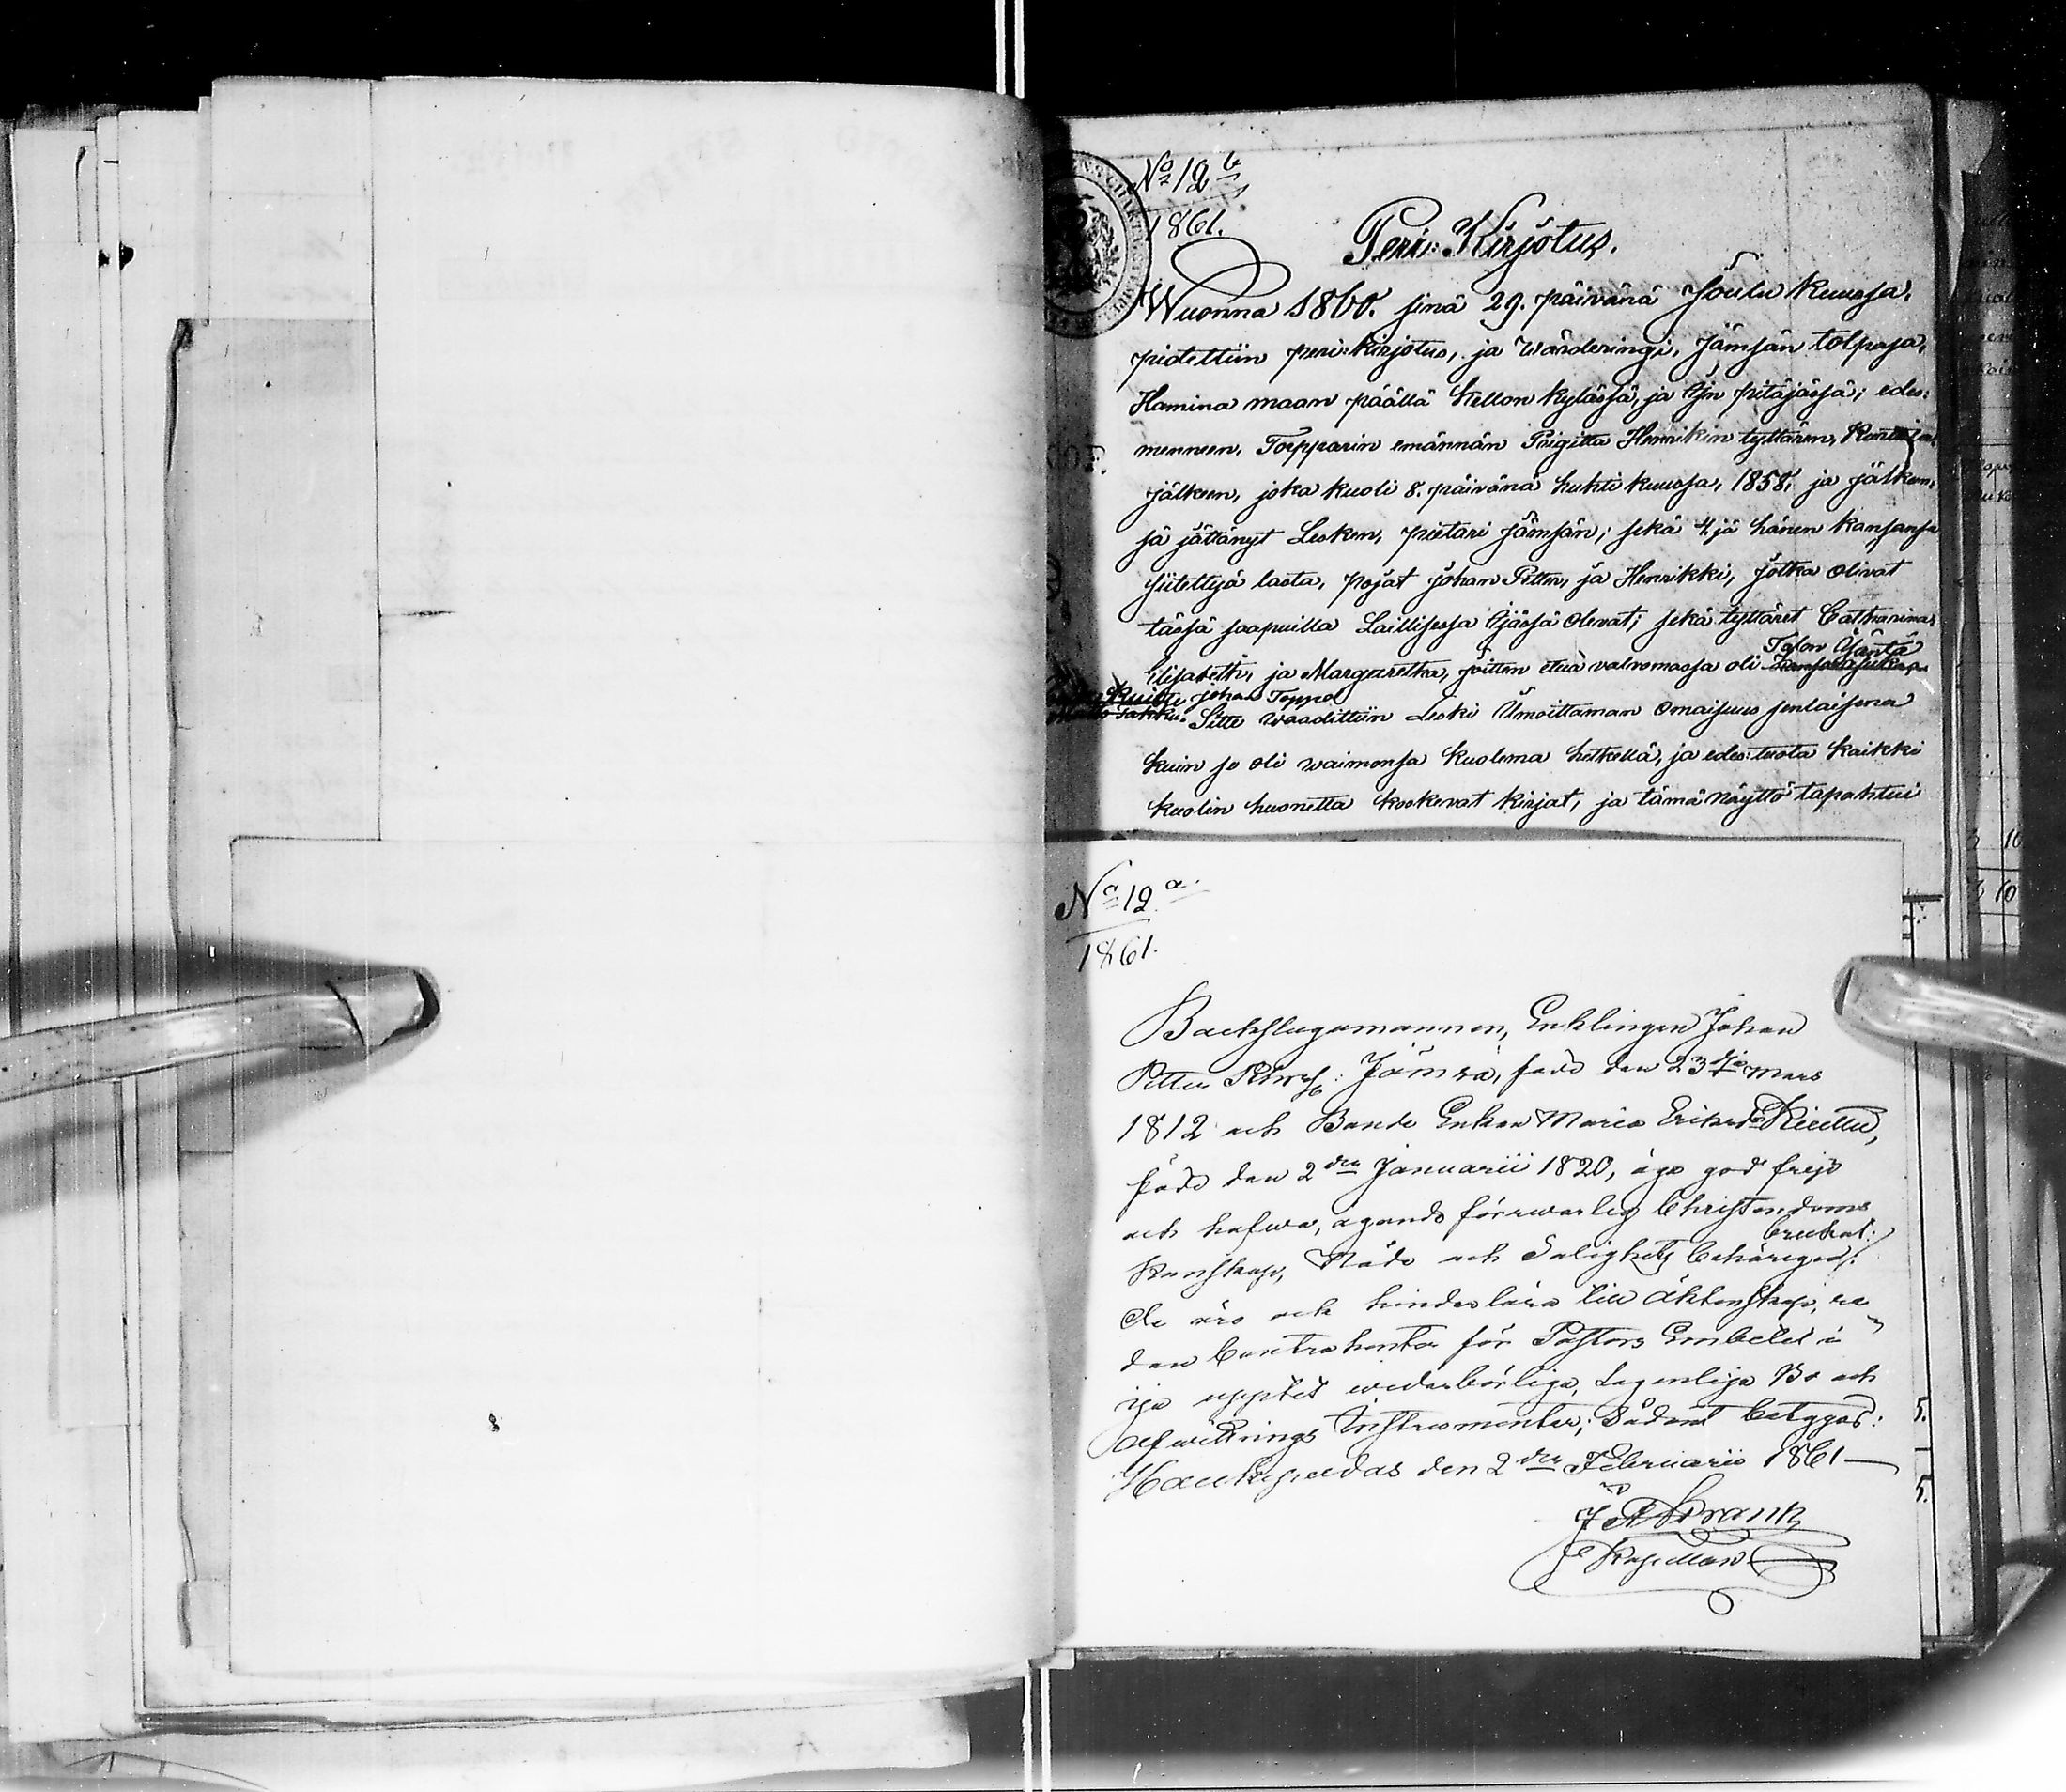 No 12 b
1861.
Peri: Kirjotus.
Wuonna 1860. sinä 29. päivänä Joulu Kuussa,
pidettiin peri:kirjotus, ja Wärderingi, Jämsän tolpasa,
Hamina maan päällä Kellon kylässä, ja Ijn pitäjässä; edes:
menneen, Torpparin emännän Prigitta Henrikin tyttären,
jälkeen, joka kuoli 8. päivänä huhti kuussa, 1858; ja jälkeen,
sä jättänyt Lesken, pietari Jämsän; sekä 4jä hänen kansansa
siitettyä lasta, pojat Johan Petter, ja Henrikki, jotka olivat
tässä saapuilla Laillisessa Ijässä olevat; sekä tyttäret Catharina,
Talon Isäntä
Elisabeth, ja Margareetha, joitten etua valvomassa oli
Johan Toppol
Sitte waadittiin Leski Ilmoittaman Omaisuus senlaisena
kuin se oli waimonsa kuolema hetkellä, ja edes:tuota kaikki
kuolin huonetta koskevat kirjat, ja tämä näyttö tapahtui
No 12 a.
1861.
Backstugumannen, Enklingen Johan
Petter Pehrs: Jämsä, född den 23dje mars
1812 och Bonde Enkan Maria Eriksdr
född den 2dra Januarii 1820, äga god frejd
och hafwa, ägande förswarlig Christendoms
brukat:
Kunskap, Nåde och Salighets
de äro och hinderlösa till äktenskap, se
dan Contrahenter för Pastors Embetet i
ga upptet wederbörliga, Lagenliga Bo och
Afwittrings Instrumenter; Sådant betygas:
Haukipudas den 2dra Februarii 1861
J A Krank
Kapellan
5.
5.